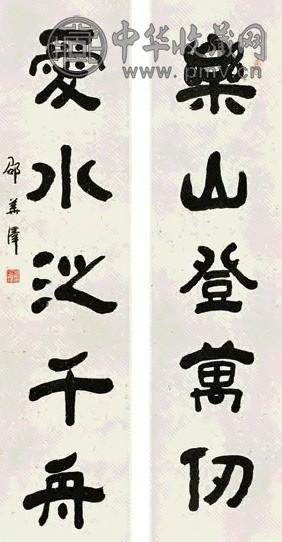 中华收藏网
www.pmv.cn
樂山登萬仞
愛水泛千舟
邵華澤